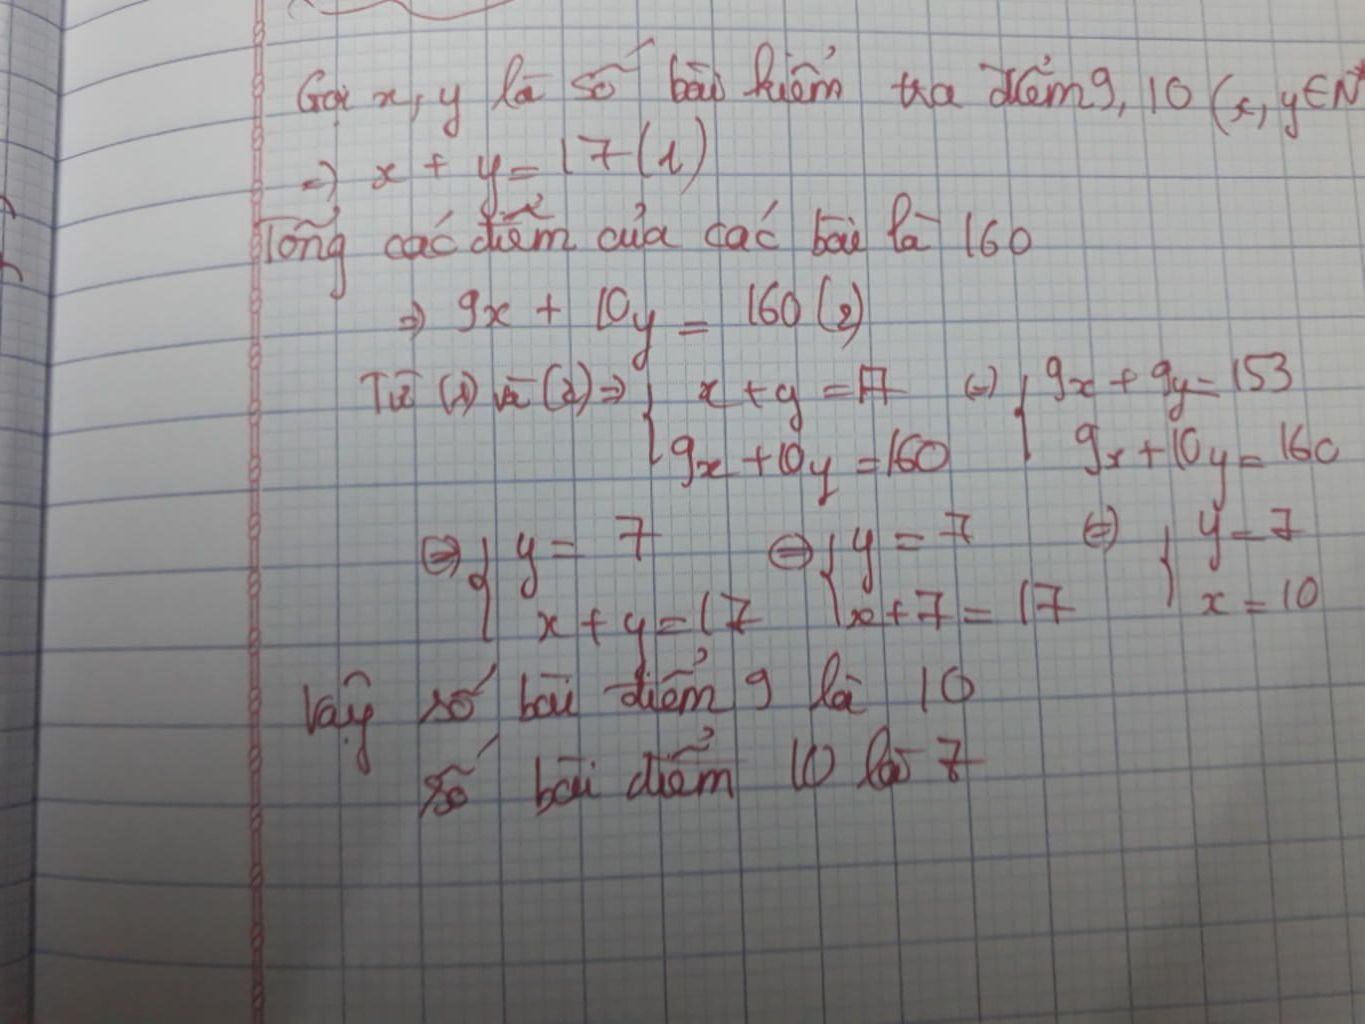 Gọi x, y là số bài kiểm tra điểm 9, 10 (x, y ∈ N*
⇒ x + y = 17 (1)
Tổng các điểm của các bài là 160
⇒ 9x + 10y = 160 (2)
Từ (1) và (2) ⇒ { x + y = 17 (⇔) { 9x + 9y = 153
9x + 10y = 160 9x + 10y = 160
⇔ { y = 7 ⇔ { y = 7 ⇔ { y = 7
x + y = 17 x + 7 = 17 x = 10
Vậy số bài điểm 9 là 10
số bài điểm 10 là 7